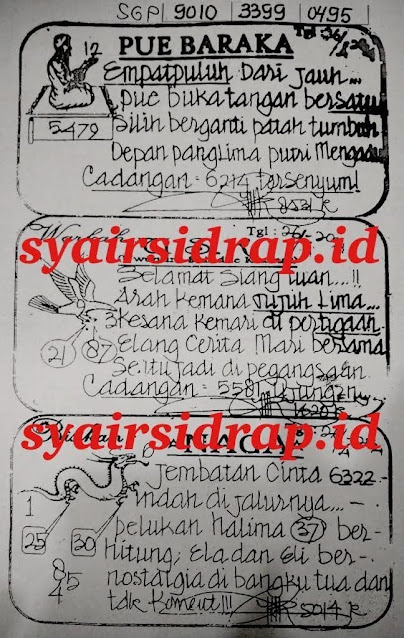 SGP | 9010 | 3399 | 0495
12 PUE BARAKA
Empatpuluh Dari Jauh...
pue buka tangan bersatu
5479 Silih berganti patah tumbuh
Depan panglima putri Mengadu
Cadangan = 6214 tersenyum!
syairsidrap.id
Selamat Siang tuan....!!
Arah kemana tujuh Lima...
kesana kemari di pertigaan
21 87 Elang Cerita Mari bersama
Sentu jadi di pegangsaan
Cadangan = 5581
syairsidrap.id
NAGA
Jembatan Cinta 6322.-
1 indah di jalurnya... -
pelukan Nalima 37 ber-
25 30 Hitung; Ela dan Eli ber-
8 5 nostalgia di bangku tua dan
4 tak Koment!!! 5014